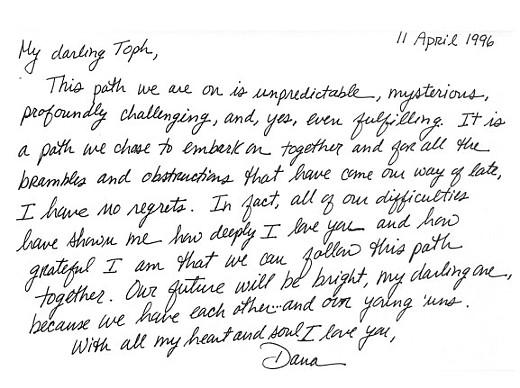 11 April 1996
My darling Toph,
This path we are on is unpredictable, mysterious,
profoundly challenging, and, yes, even fulfilling. It is
a path we chose to embark on together and for all the
brambles and obstructions that have come our way of late,
I have no regrets. In fact, all of our difficulties
have shown me how deeply I love you and how
grateful I am that we can follow this path
together. Our future will be bright, my darling one,
because we have each other...and our young 'uns.
With all my heart and soul I love you,
Dana